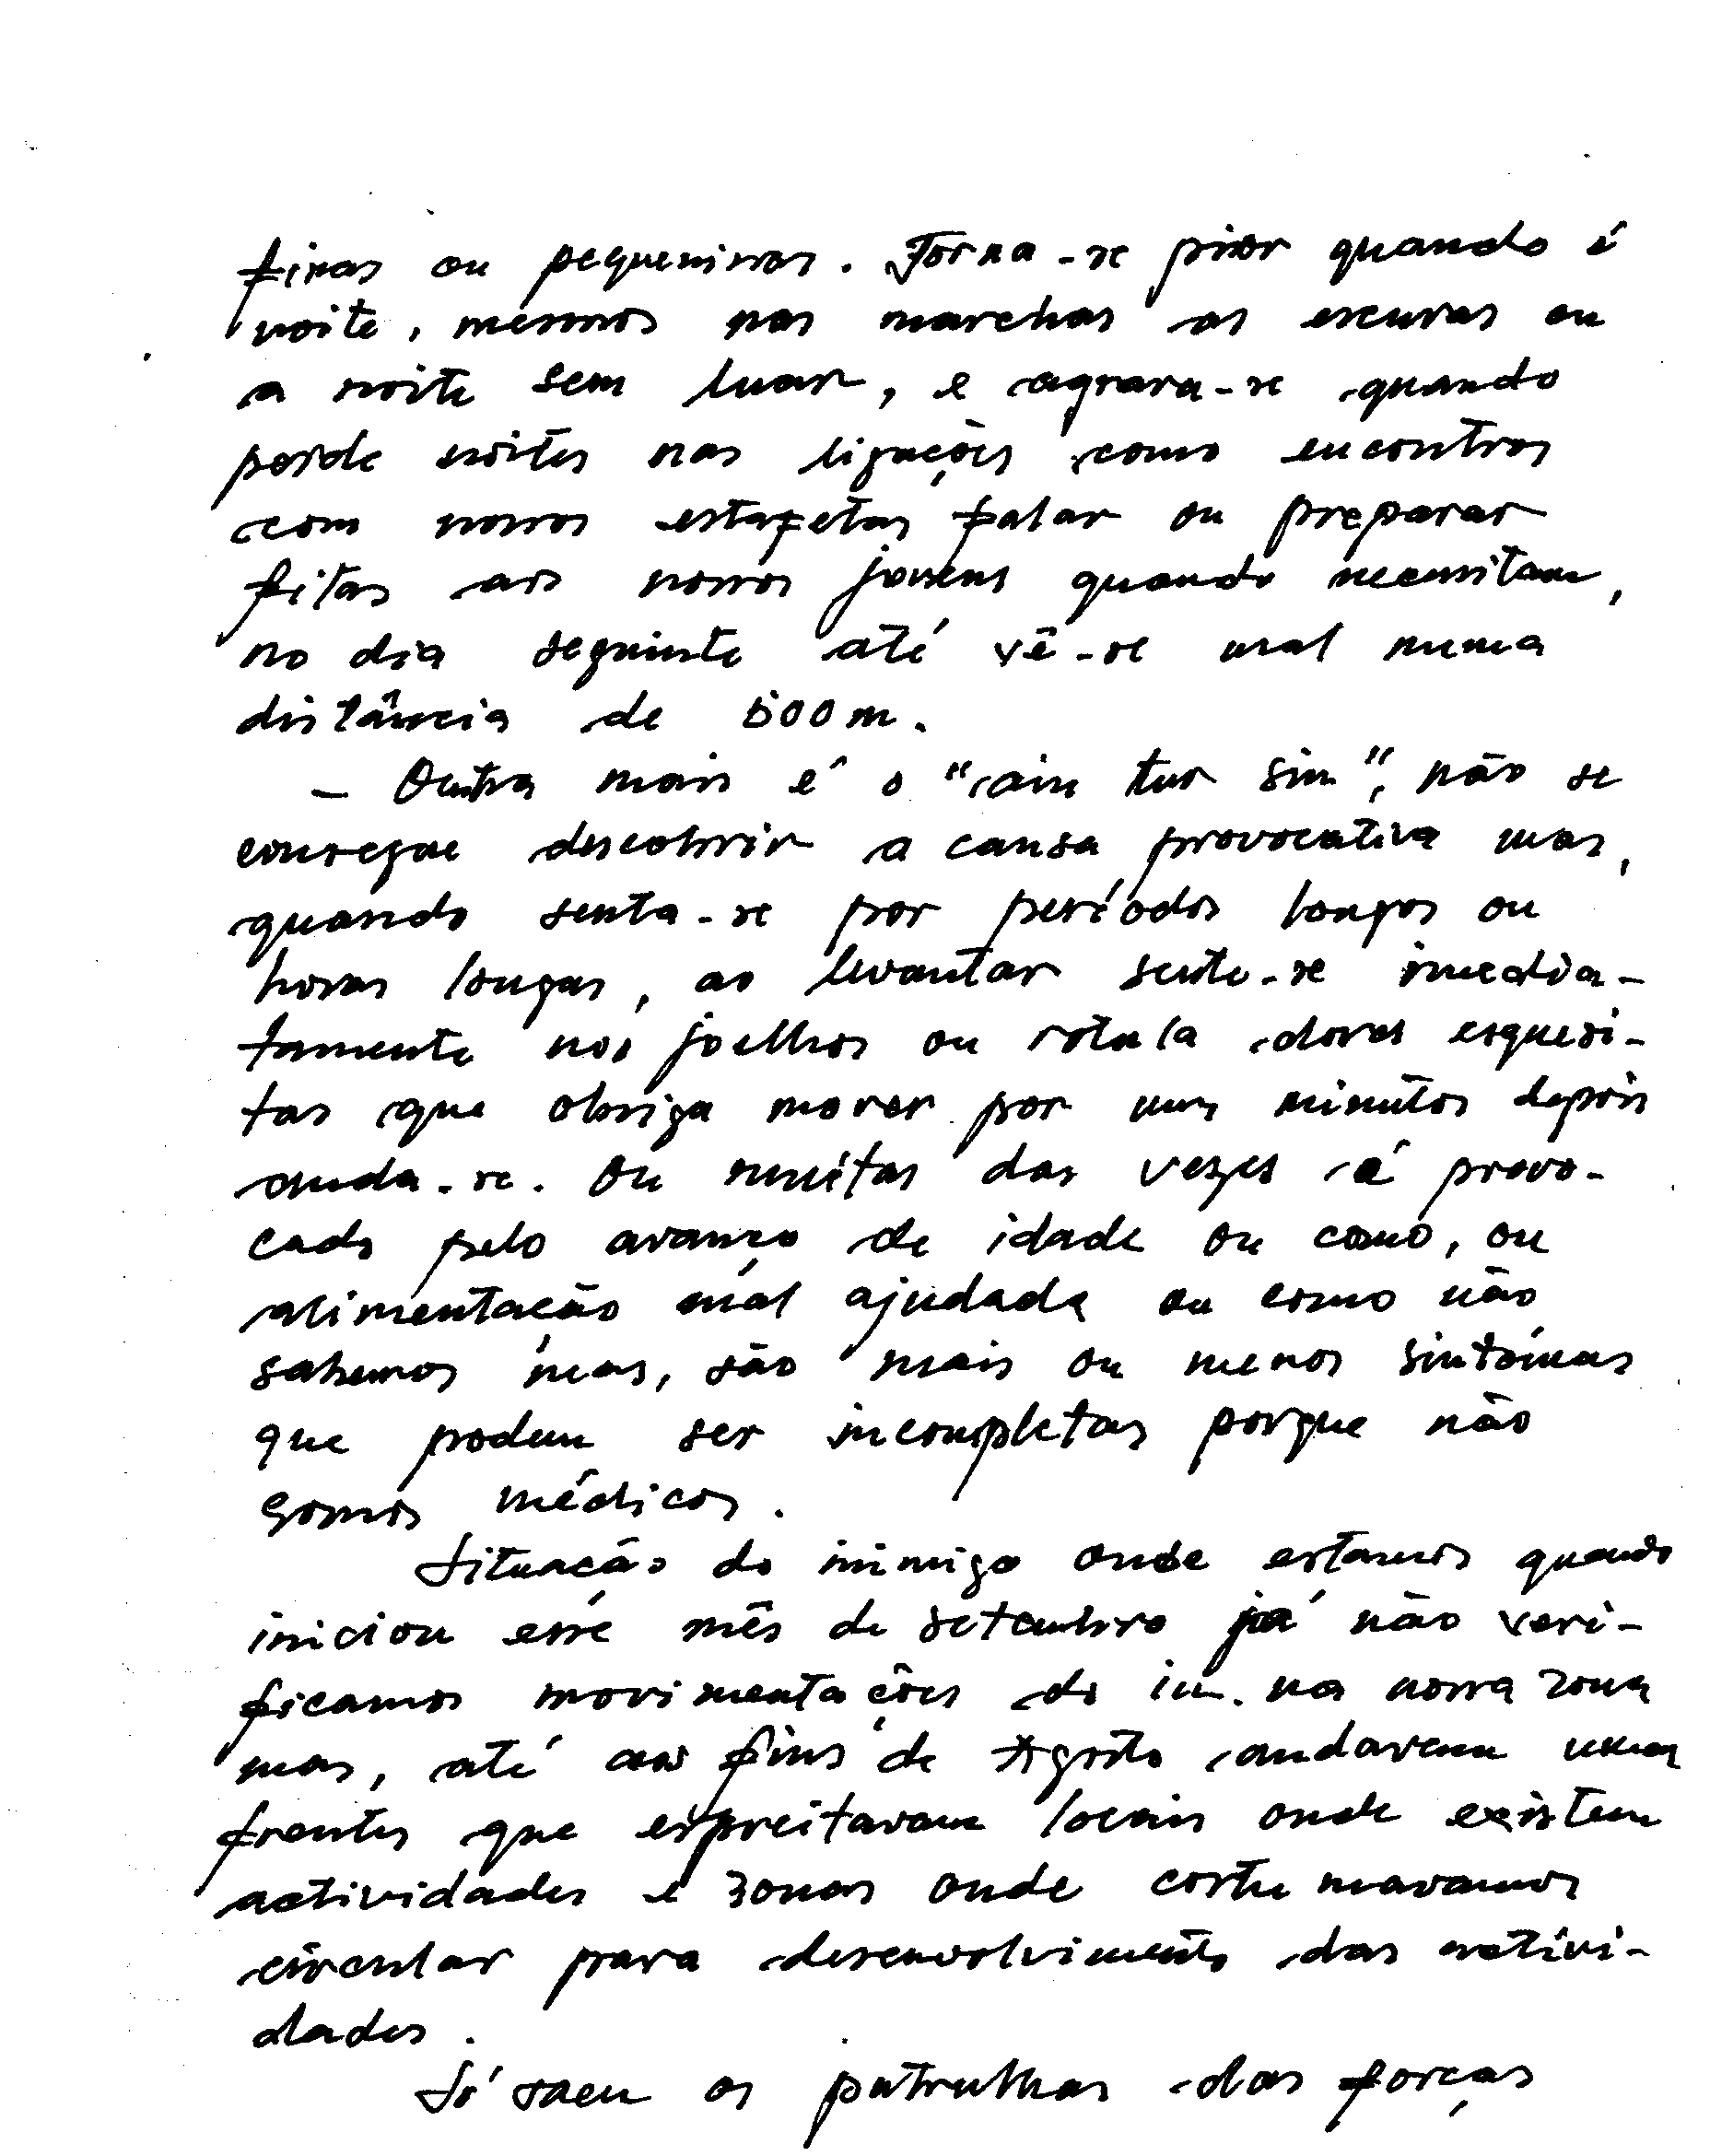 finas ou pequeninas. Torna-se pior quando é
noite, mesmos nas marchas as escuras ou
a noite sem luar, e agrava-se quando
perde noites nas ligações como encontros
com nossos estafetas falar ou preparar
fitas aos nossos jovens quando necessitam,
no dia seguinte até vê-se mal numa
distância de 500m.
- Outra mais é o "cain tur sim", não se
consegue descobrir a causa provocativa mas,
quando senta-se por períodos longos ou
horas longas, ao levantar sente-se imedia-
tamente nos joelhos ou rotula dores esquesi-
tas que obriga mover por uns minutos depois
anda-se. Ou muitas das vezes é provo-
cado pelo avanço de idade ou como, ou
alimentação mál ajudada ou como não
sabemos mas, são mais ou menos sintómas
que podem ser incompletas porque não
somos médicos.
Situação do inimigo onde estamos quando
iniciou esse mês de setembro já não veri-
ficamos movimentações do in. na nossa zona
mas, até aos fins de Agosto andavam umas
frentes que espreitavam locais onde existem
actividades e zonas onde costumavamos
circular para desenvolvimento das activi-
dades.
Só saem as patrulhas das forças